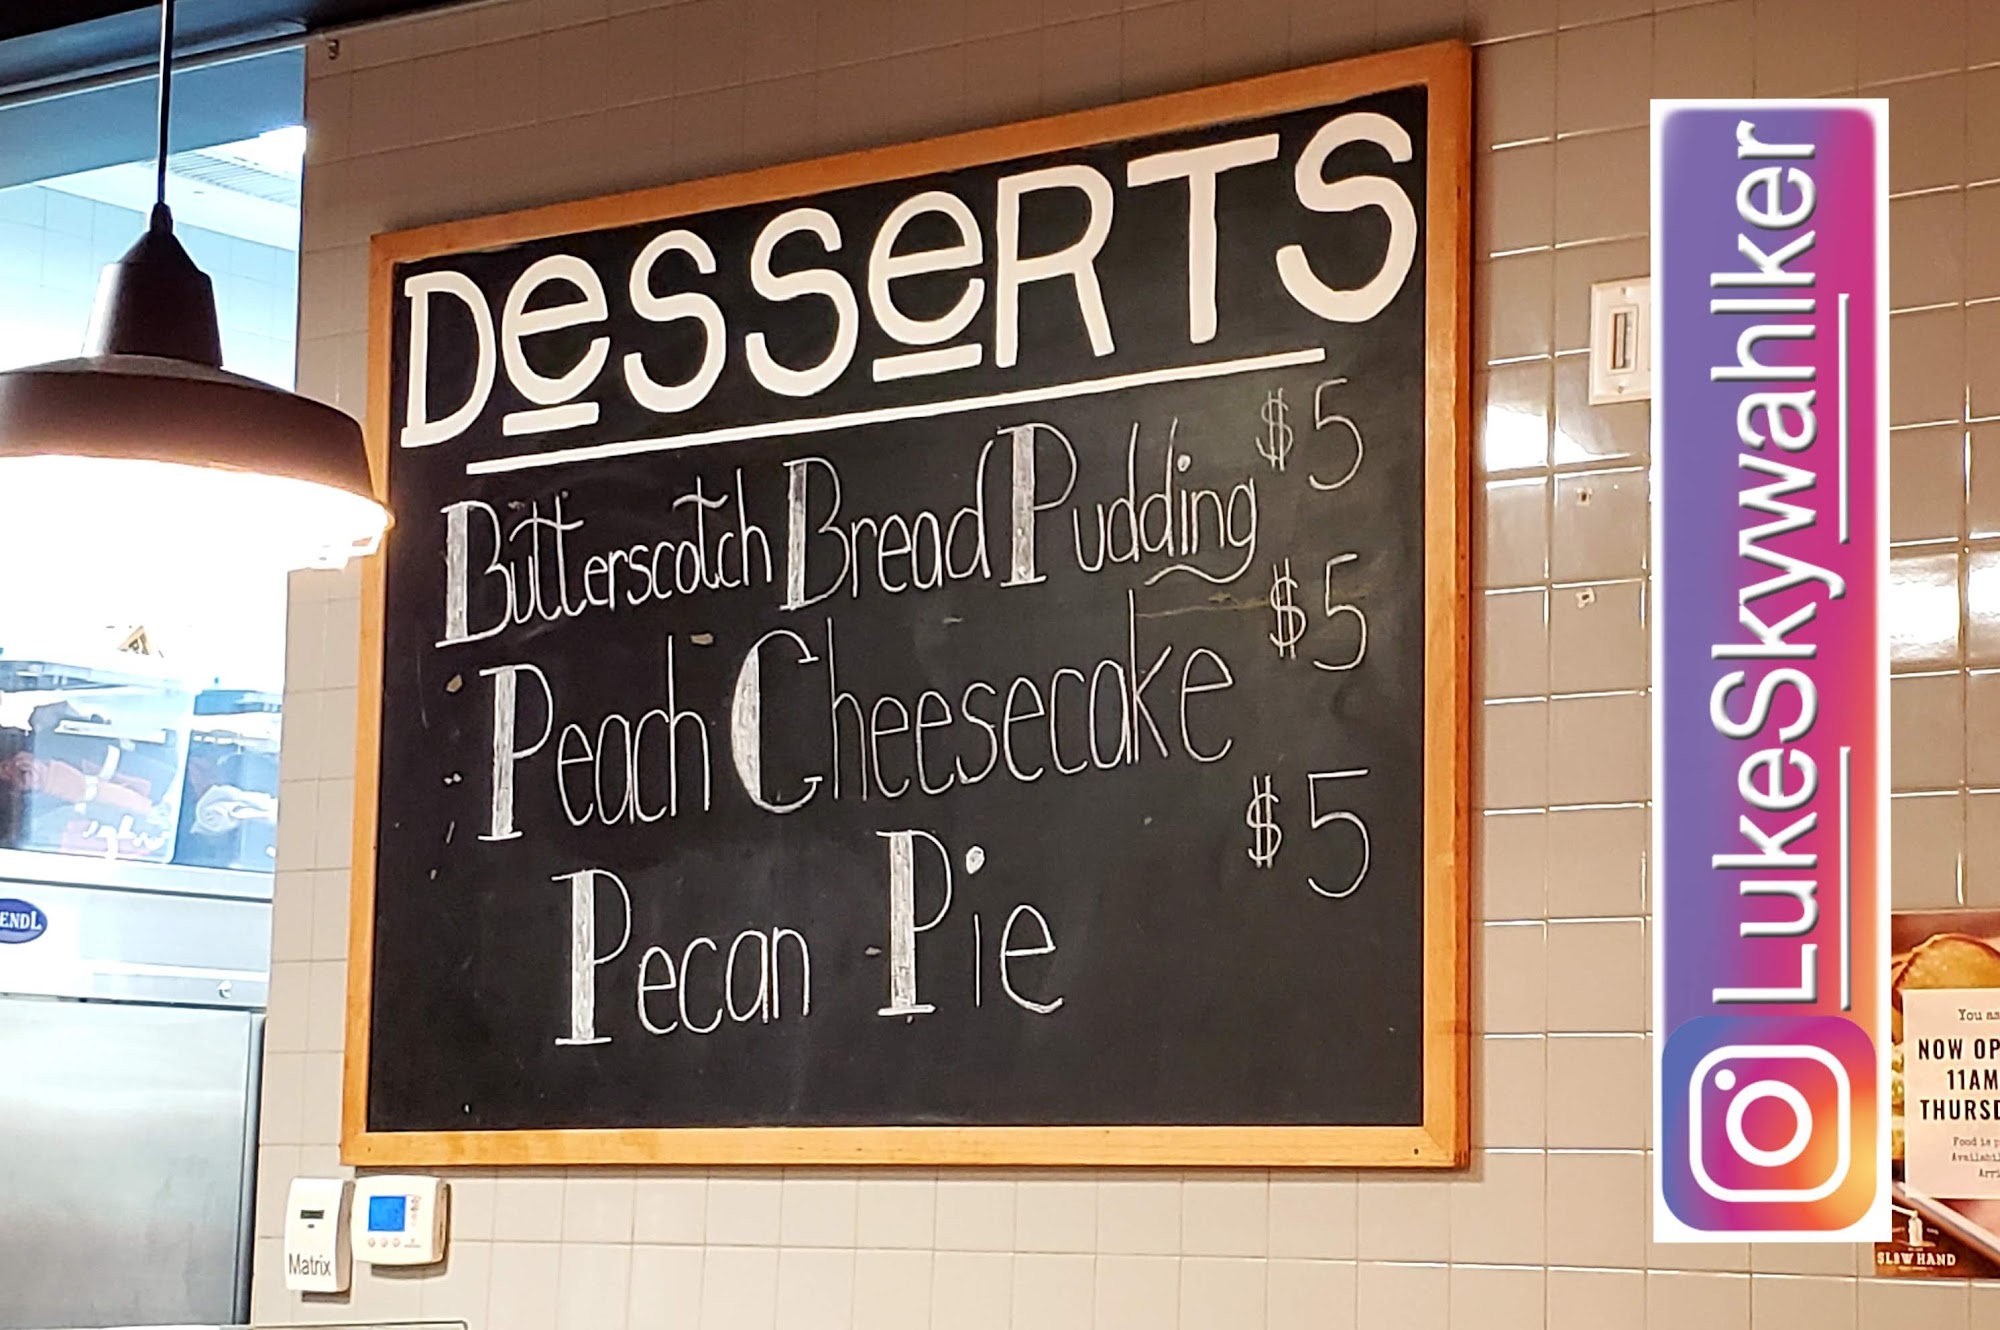 DesseRTS
Butterscotch Bread Pudding $5
Peach Cheesecake $5
Pecan Pie $5
LukeSkywahlker
ENDL
Matrix
You
NOW OP
11AM
THURSD
Food is
Availabil
SLOWHAND